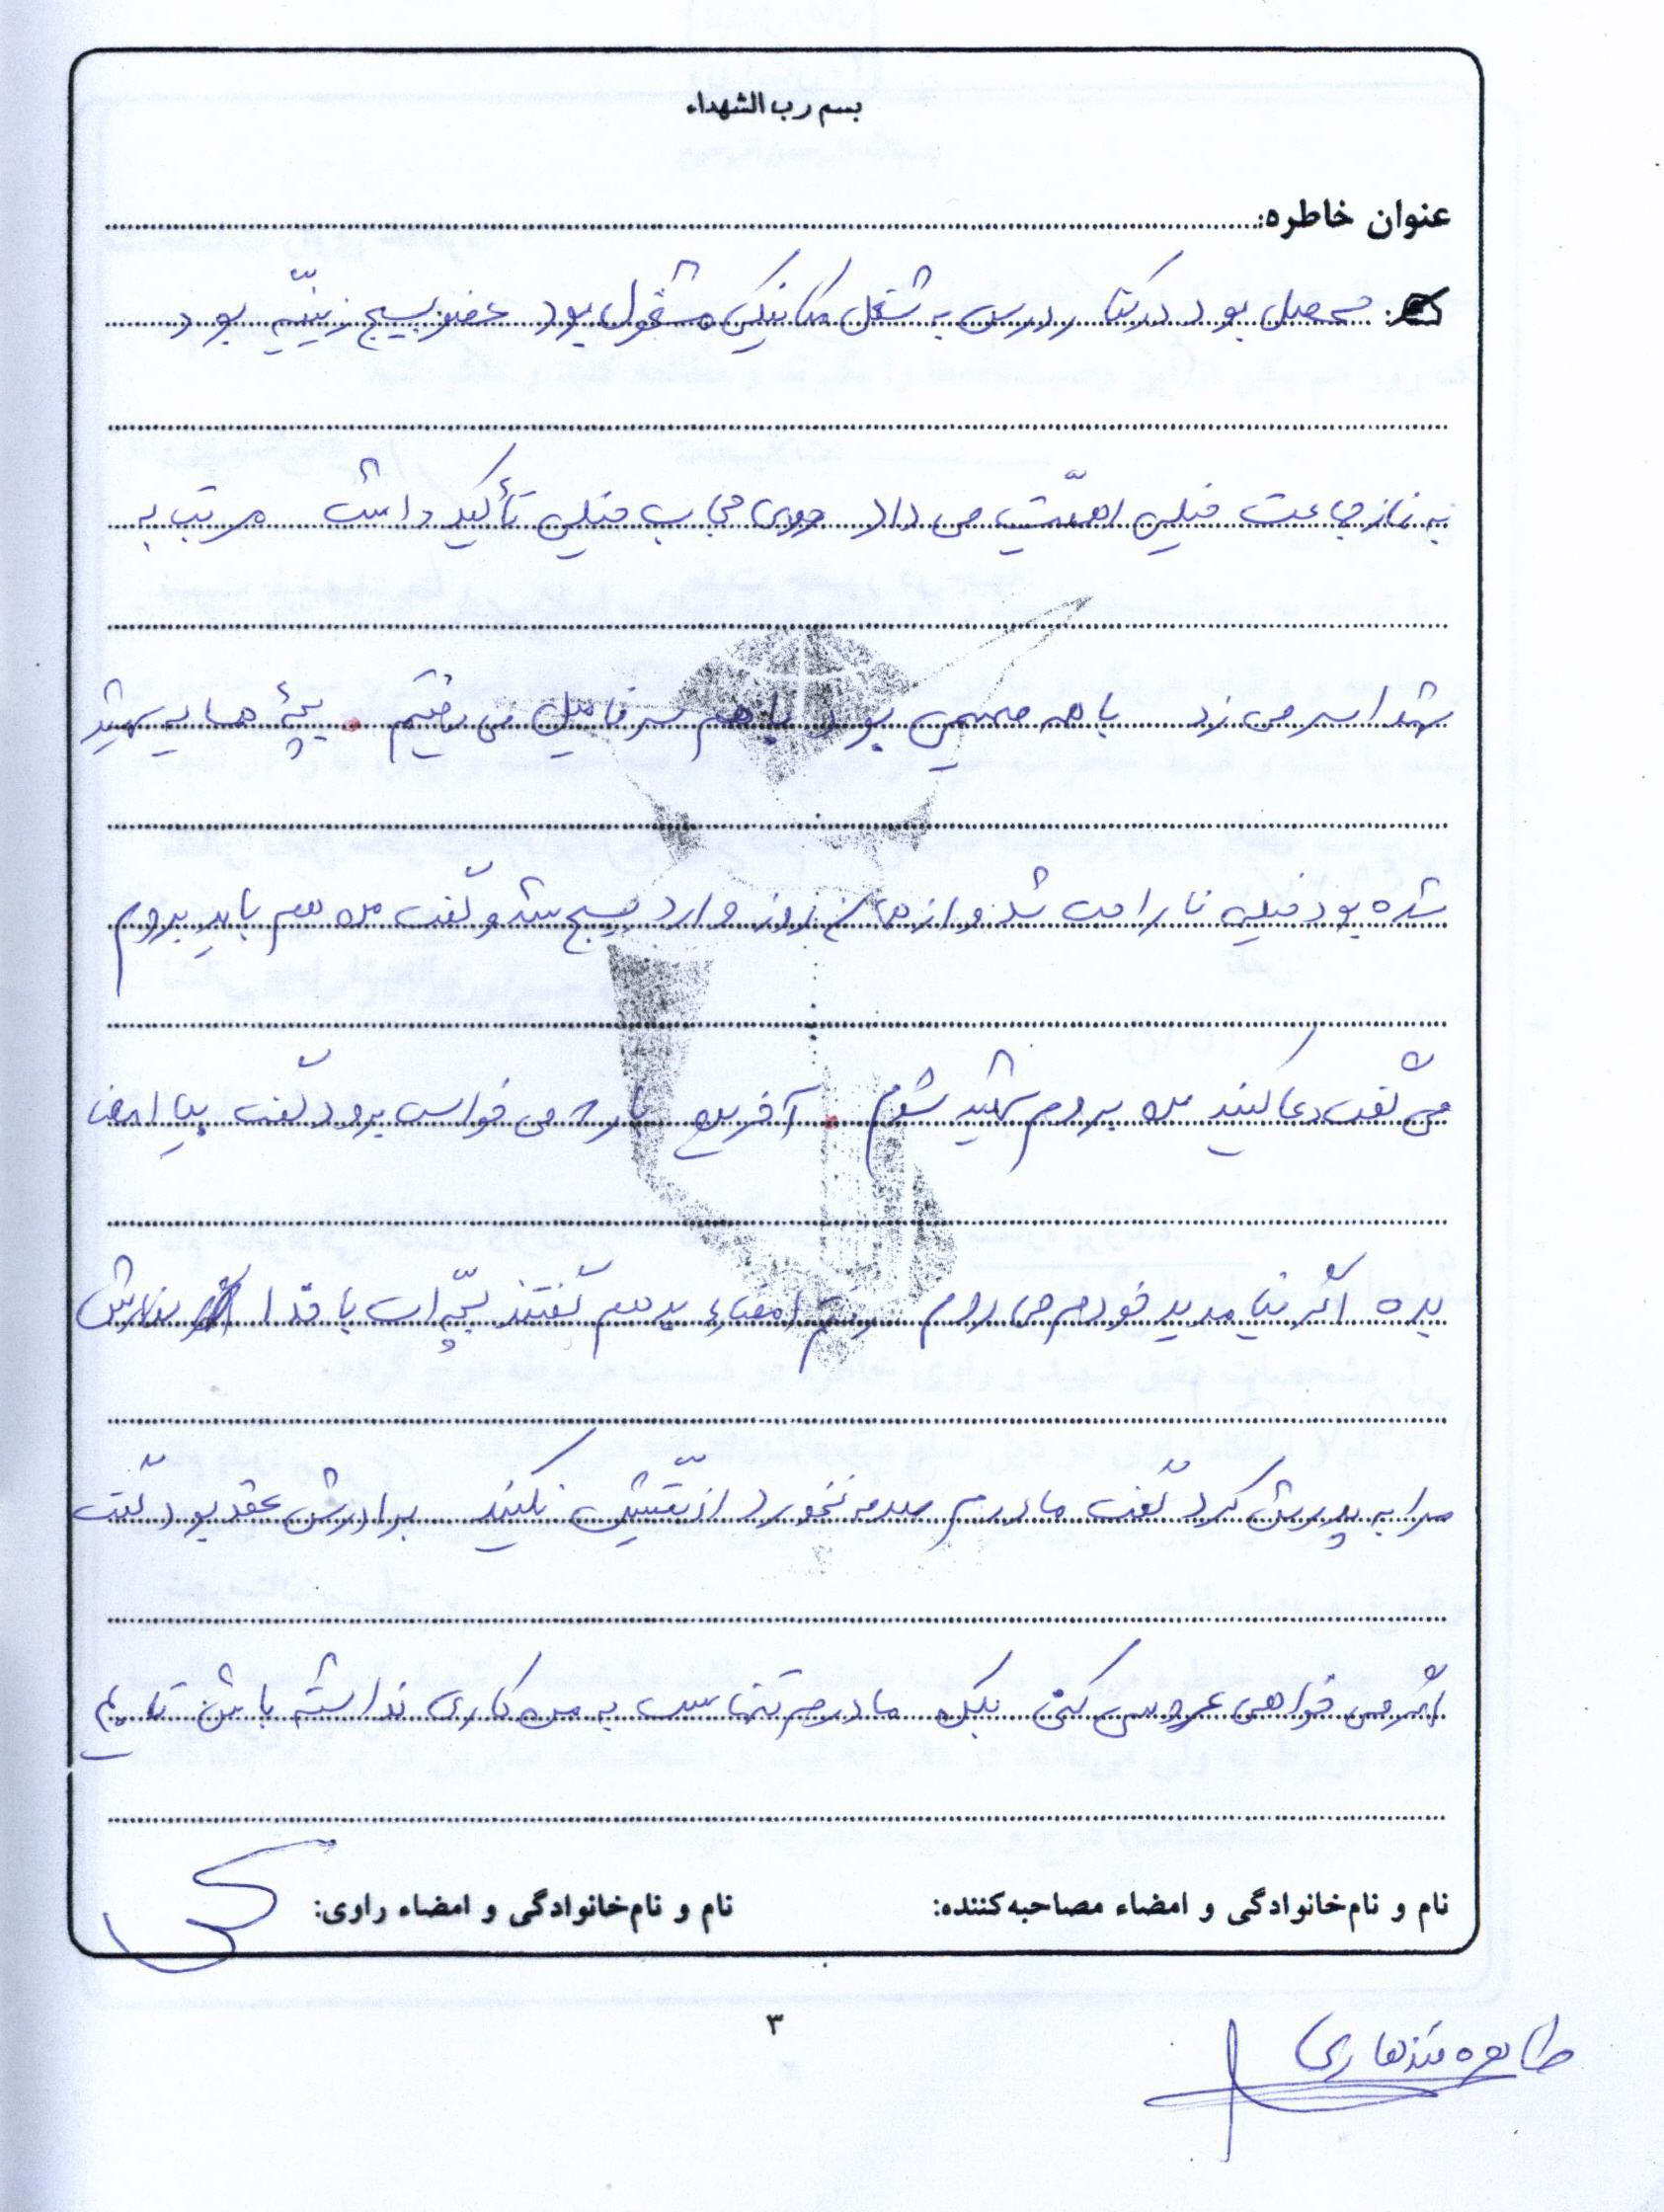 بسم رب الشهداء
عنوان خاطره:
محصل بود در کنار درس به شغل مکانیکی مشغول بود عضو بسیج زینبیّه بود
به نماز جماعت خیلی اهمیّت می داد روی حجاب خیلی تأکید داشت مرتب به
شهدا سر می زد با همه صمیمی بود با هم سر فامیل می رفتیم. بچّۀ همسایه شهید
شده بود خیلی ناراحت شد و از همان روز وارد بسیج شد و گفت من هم باید بروم
می گفت دعا کنید من بروم شهید شوم. آخرین بار که می خواست برود گفت بیا امضاء
بده اگر نیامدید خودم می روم رفتم امضاء بدهم گفتند بچّه ات با خدا سفارش
مرا به پدرش کرد گفت مادرم صدمه نخورد اذیّتش نکنید برادرش عقد بود گفت
اگر می خواهی عروسی کنی بکن مادرم تنهاست به من کاری نداشته باش تا بیایم
نام و نام‌خانوادگی و امضاء مصاحبه‌کننده:
نام و نام‌خانوادگی و امضاء راوی:
۳
طاهره قندهاری